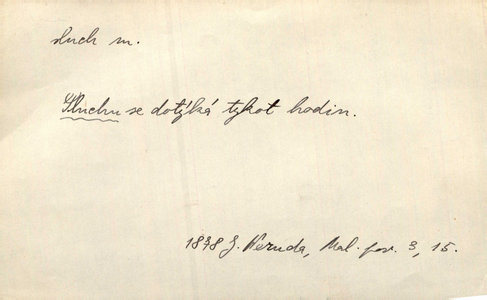 sluch m.
Sluchu se dotýká tykot hodin.
1878 J. Neruda, Mal. pov. 3, 15.